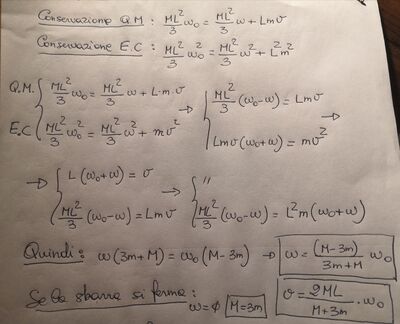 Conservazione Q.M : ML²/3 ω₀ = ML²/3 ω + Lmv
Conservazione E.C : ML²/3 ω₀² = ML²/3 ω² + L²m²
Q.M. { ML²/3 ω₀ = ML²/3 ω + L·m·v → { ML²/3 (ω₀-ω) = Lmv
E.C { ML²/3 ω₀² = ML²/3 ω² + mv² { Lmv(ω₀+ω) = mv²
→ { L(ω₀+ω) = v → { "
{ ML²/3 (ω₀-ω) = Lmv { ML²/3 (ω₀-ω) = L²m(ω₀+ω)
Quindi: ω(3m+M) = ω₀(M-3m) → ω = (M-3m)/3m+M ω₀
Se la sbarra si ferma: ω=∅ M=3m v = 2ML/M+3m · ω₀